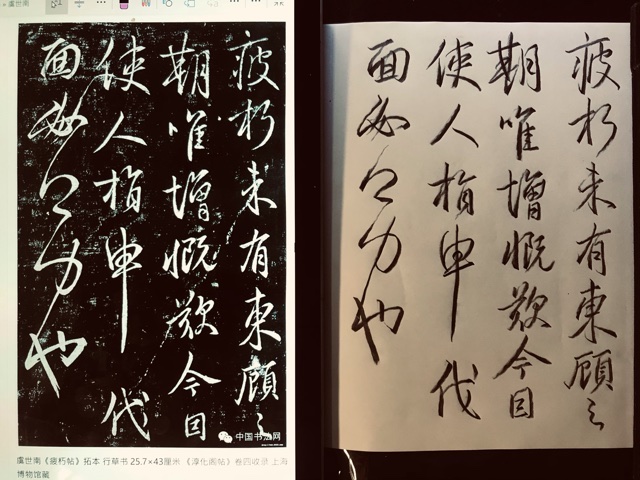 虞世南
疲朽未有東顧之
期唯增慨歎今因
使人指申代
面必不一一也
中国书法网
虞世南《疲朽帖》拓本 行草书 25.7×43厘米 《淳化阁帖》卷四收录 上海
博物馆藏
疲朽未有東顧之
期唯增慨歎今因
使人指申代
面
也